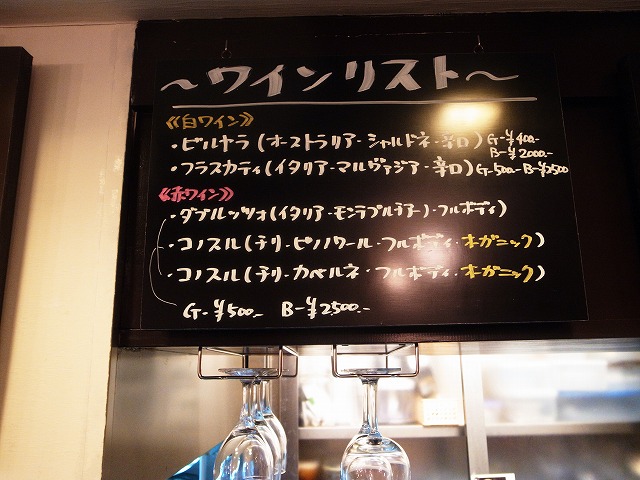 ～ワインリスト～
《白ワイン》
・ビルヤラ(オーストラリア-シャルドネ-辛口) G-¥400-
B-¥2000-
・フラスカティ(イタリア-マルヴァジア-辛口) G-500- B-¥2500
《赤ワイン》
・ダブルッツォ(イタリア-モンテプルチアー)-フルボディ)
・コノスル(チリ-ピノノワール-フルボディ-オーガニック)
・コノスル(チリ-カベルネ-フルボディ-オーガニック)
G-¥500- B-¥2500-